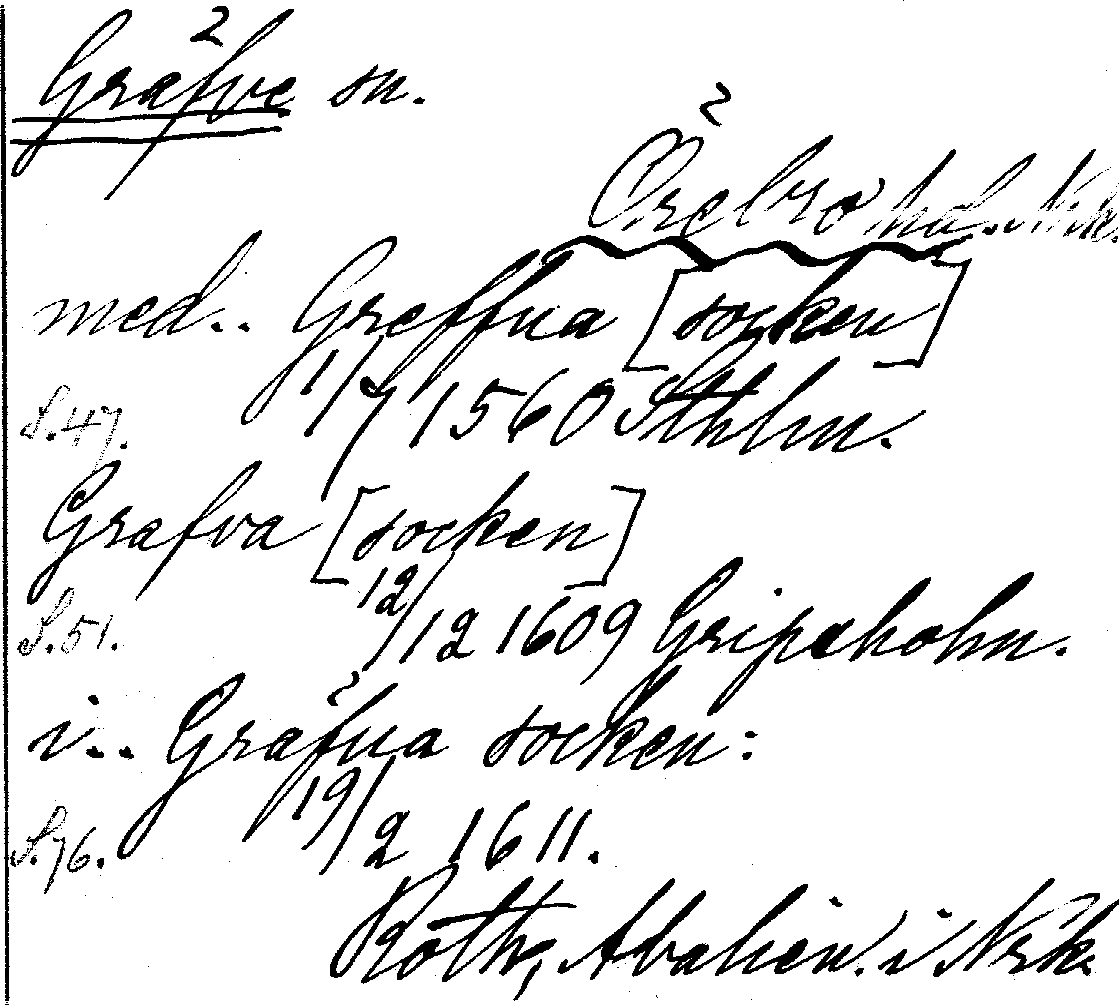 Gräfve sn.
Örebro hd. Nrk.
med.. Greffua [socken]
S.47. 1/7 1560 Sthlm.
Grafva [socken]
S.51. 12/12 1609 Gripsholm.
i.. Gräfua socken:
S.76. 19/2 1611.
Roth, Abalien. i Nrk.